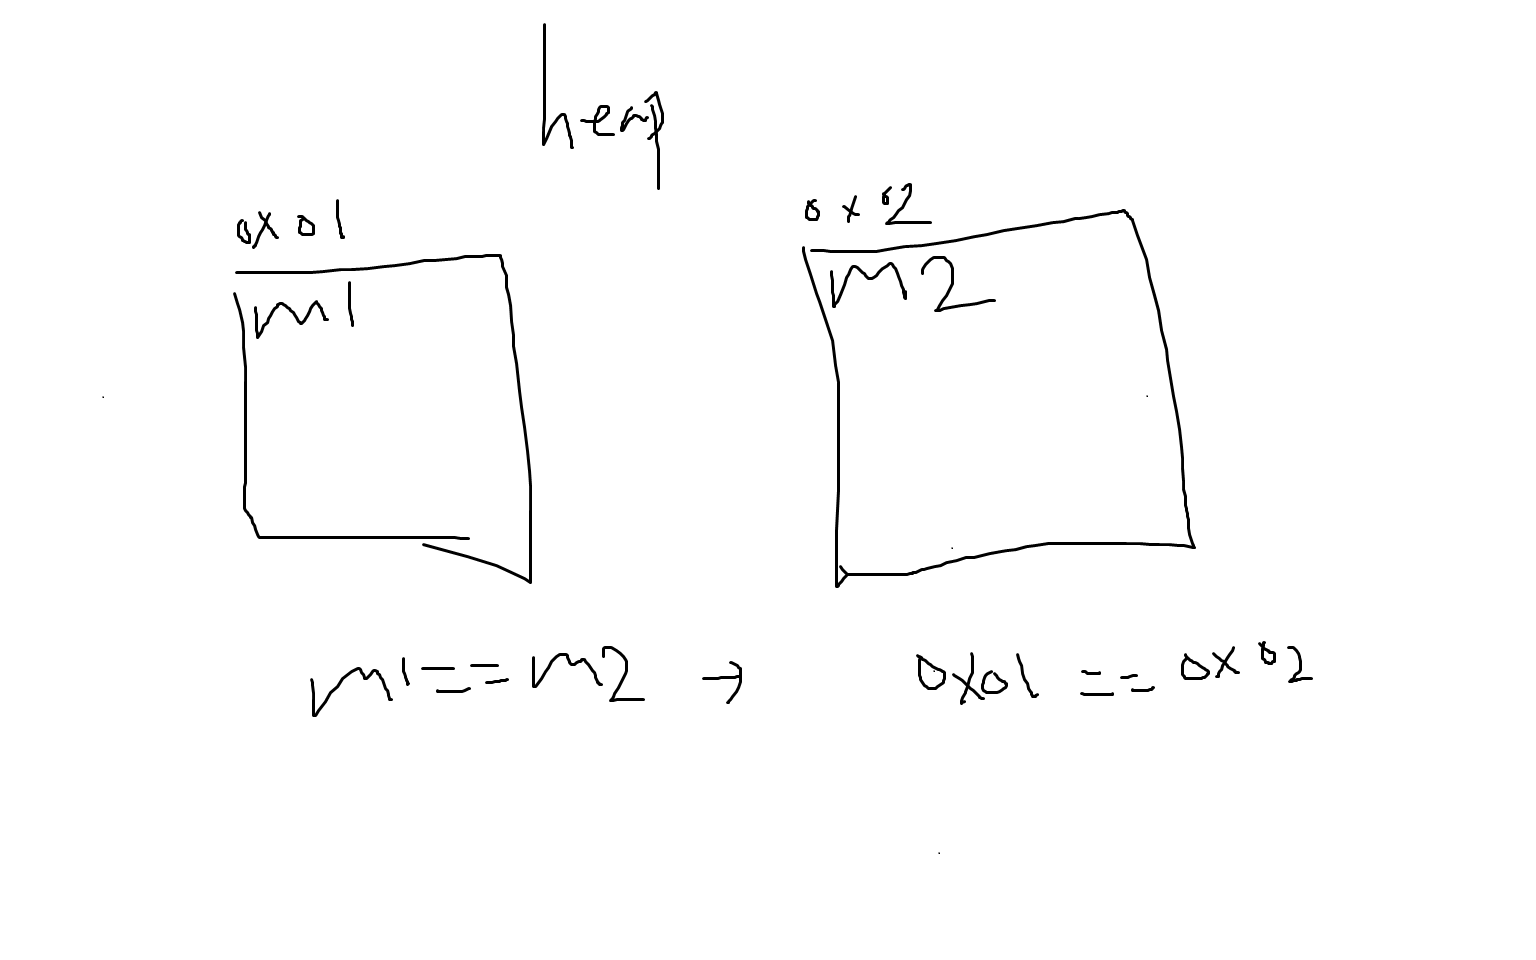 heap
0x01
0x02
m1
m2
m1 == m2 → 0x01 == 0x02